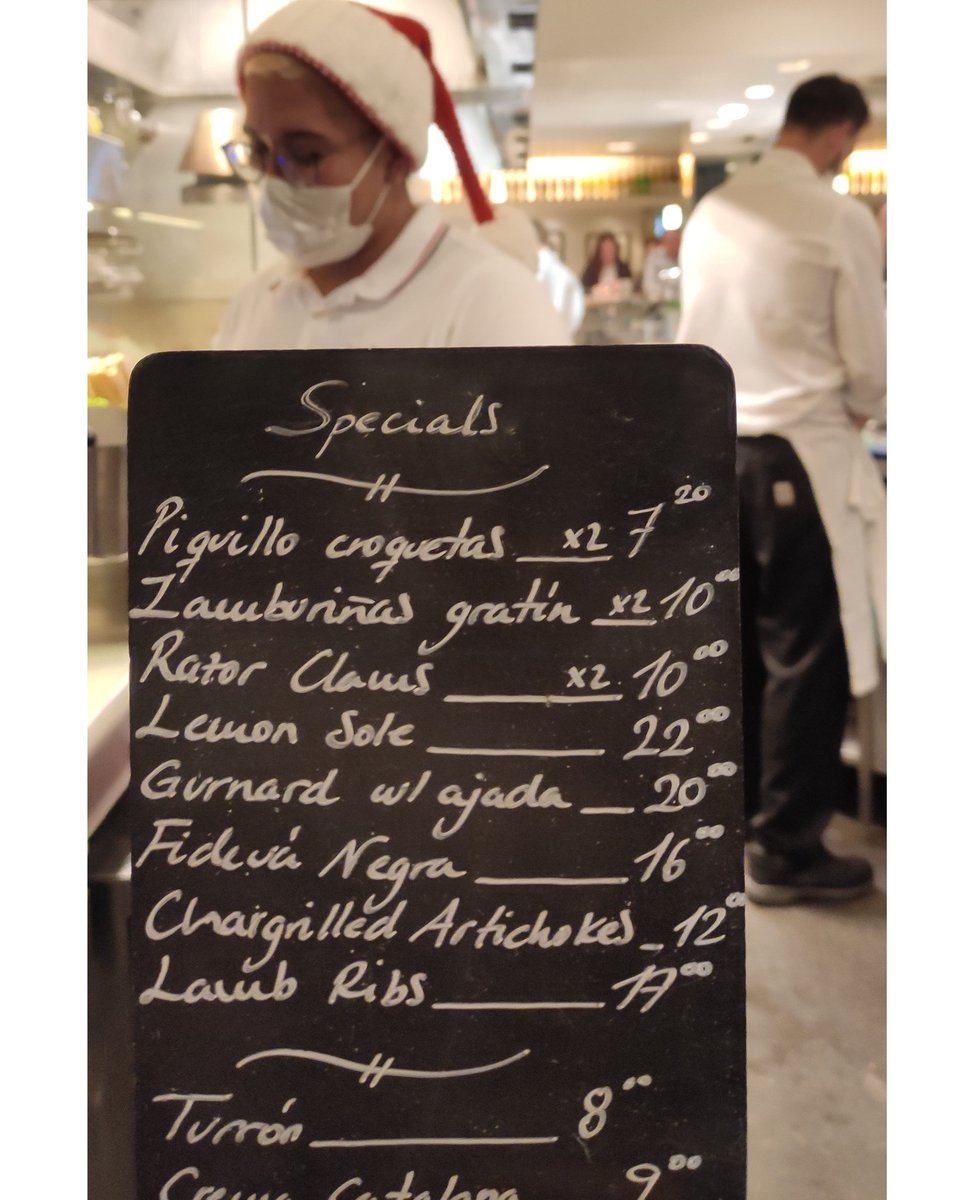 Specials
Piquillo croquetas x2 7 20
Zamburiñas gratín x2 10 00
Rator Clams x2 10 00
Lemon Sole 22 00
Gurnard w/ ajada 20 00
Fideuá Negra 16 00
Chargrilled Artichokes 12 00
Lamb Ribs 17 00
Turrón 8 00
Crema Catalana 9 00